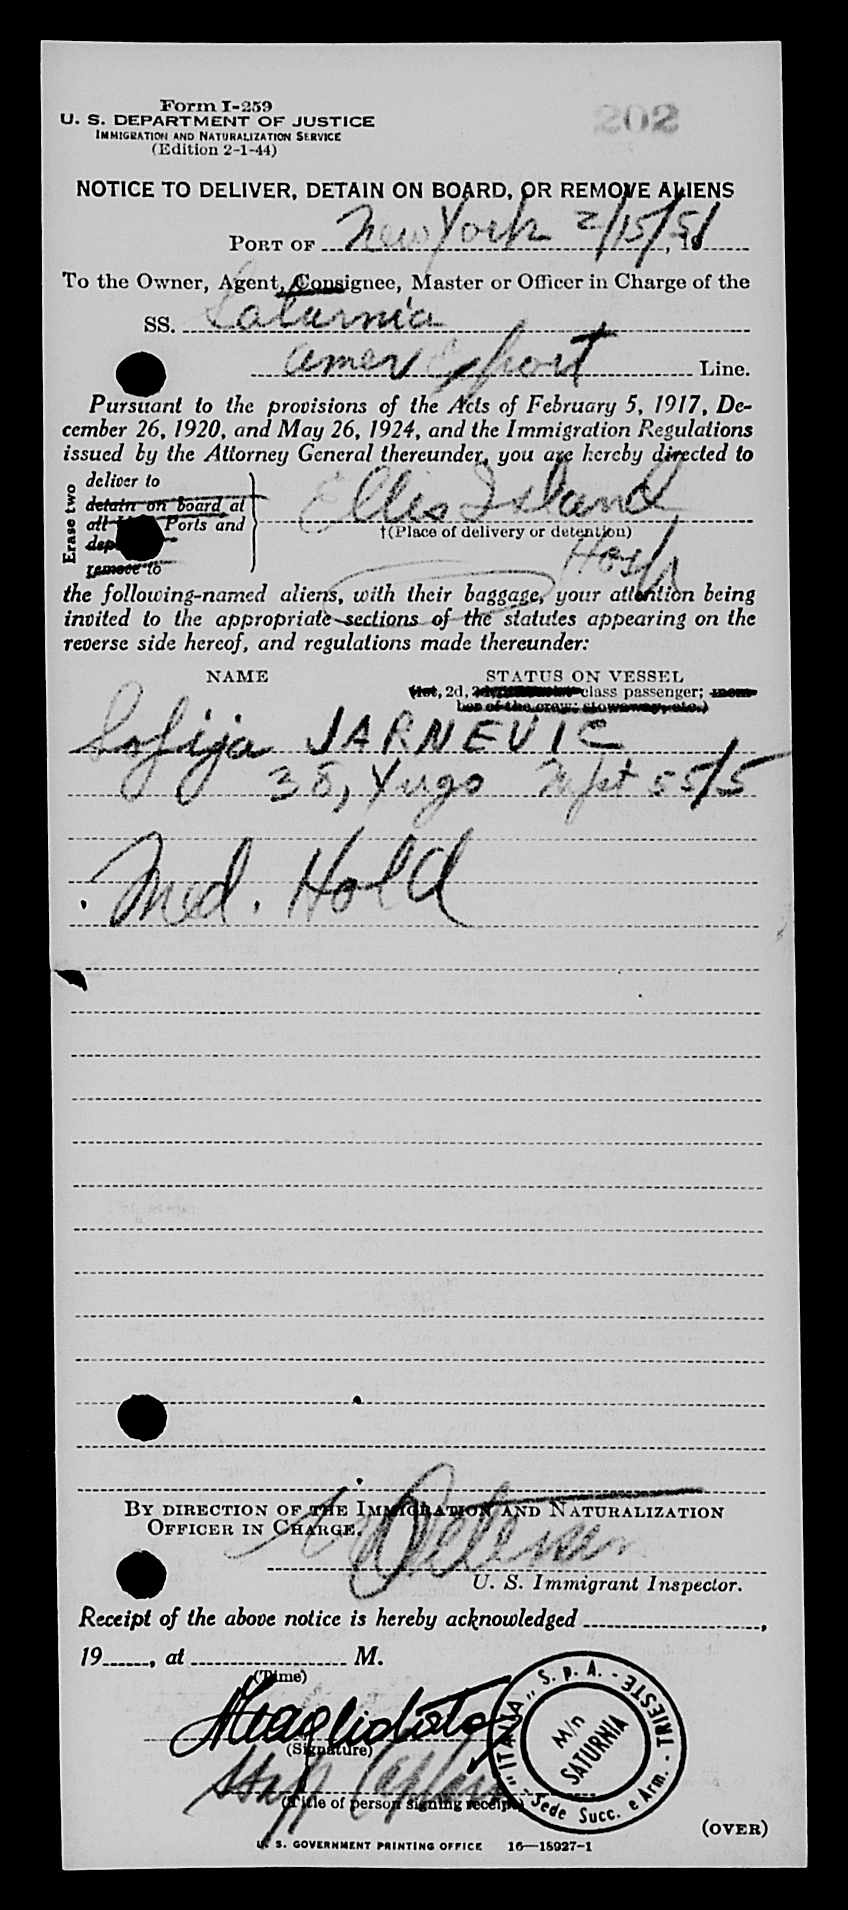 Form I-259
U. S. DEPARTMENT OF JUSTICE
IMMIGRATION AND NATURALIZATION SERVICE
(Edition 2-1-44)
202
NOTICE TO DELIVER, DETAIN ON BOARD, OR REMOVE ALIENS
PORT OF New York 2/15/51, 19
To the Owner, Agent, Consignee, Master or Officer in Charge of the
SS. Saturnia
Amer Export Line.
Pursuant to the provisions of the Acts of February 5, 1917, De-
cember 26, 1920, and May 26, 1924, and the Immigration Regulations
issued by the Attorney General thereunder, you are hereby directed to
Erase two
deliver to
detain on board at
all Ports and
remove to
Ellis Island
†(Place of delivery or detention)
Hosp
the following-named aliens, with their baggage, your attention being
invited to the appropriate sections of the statutes appearing on the
reverse side hereof, and regulations made thereunder:
NAME STATUS ON VESSEL
(1st, 2d, class passenger; mem-
ber of the crew; stowaway, etc.)
Sofija JARNEVIC
38, Yugo 55/5
Med. Hold
BY DIRECTION OF THE IMMIGRATION AND NATURALIZATION
OFFICER IN CHARGE.
U. S. Immigrant Inspector.
Receipt of the above notice is hereby acknowledged ,
19 , at M.
(Time)
(Signature)
(Title of person signing receipt)
"ITALIA" S. p. A. - TRIESTE - Sede Succ. e Arm.
M/n
SATURNIA
(OVER)
U. S. GOVERNMENT PRINTING OFFICE 16—18927-1